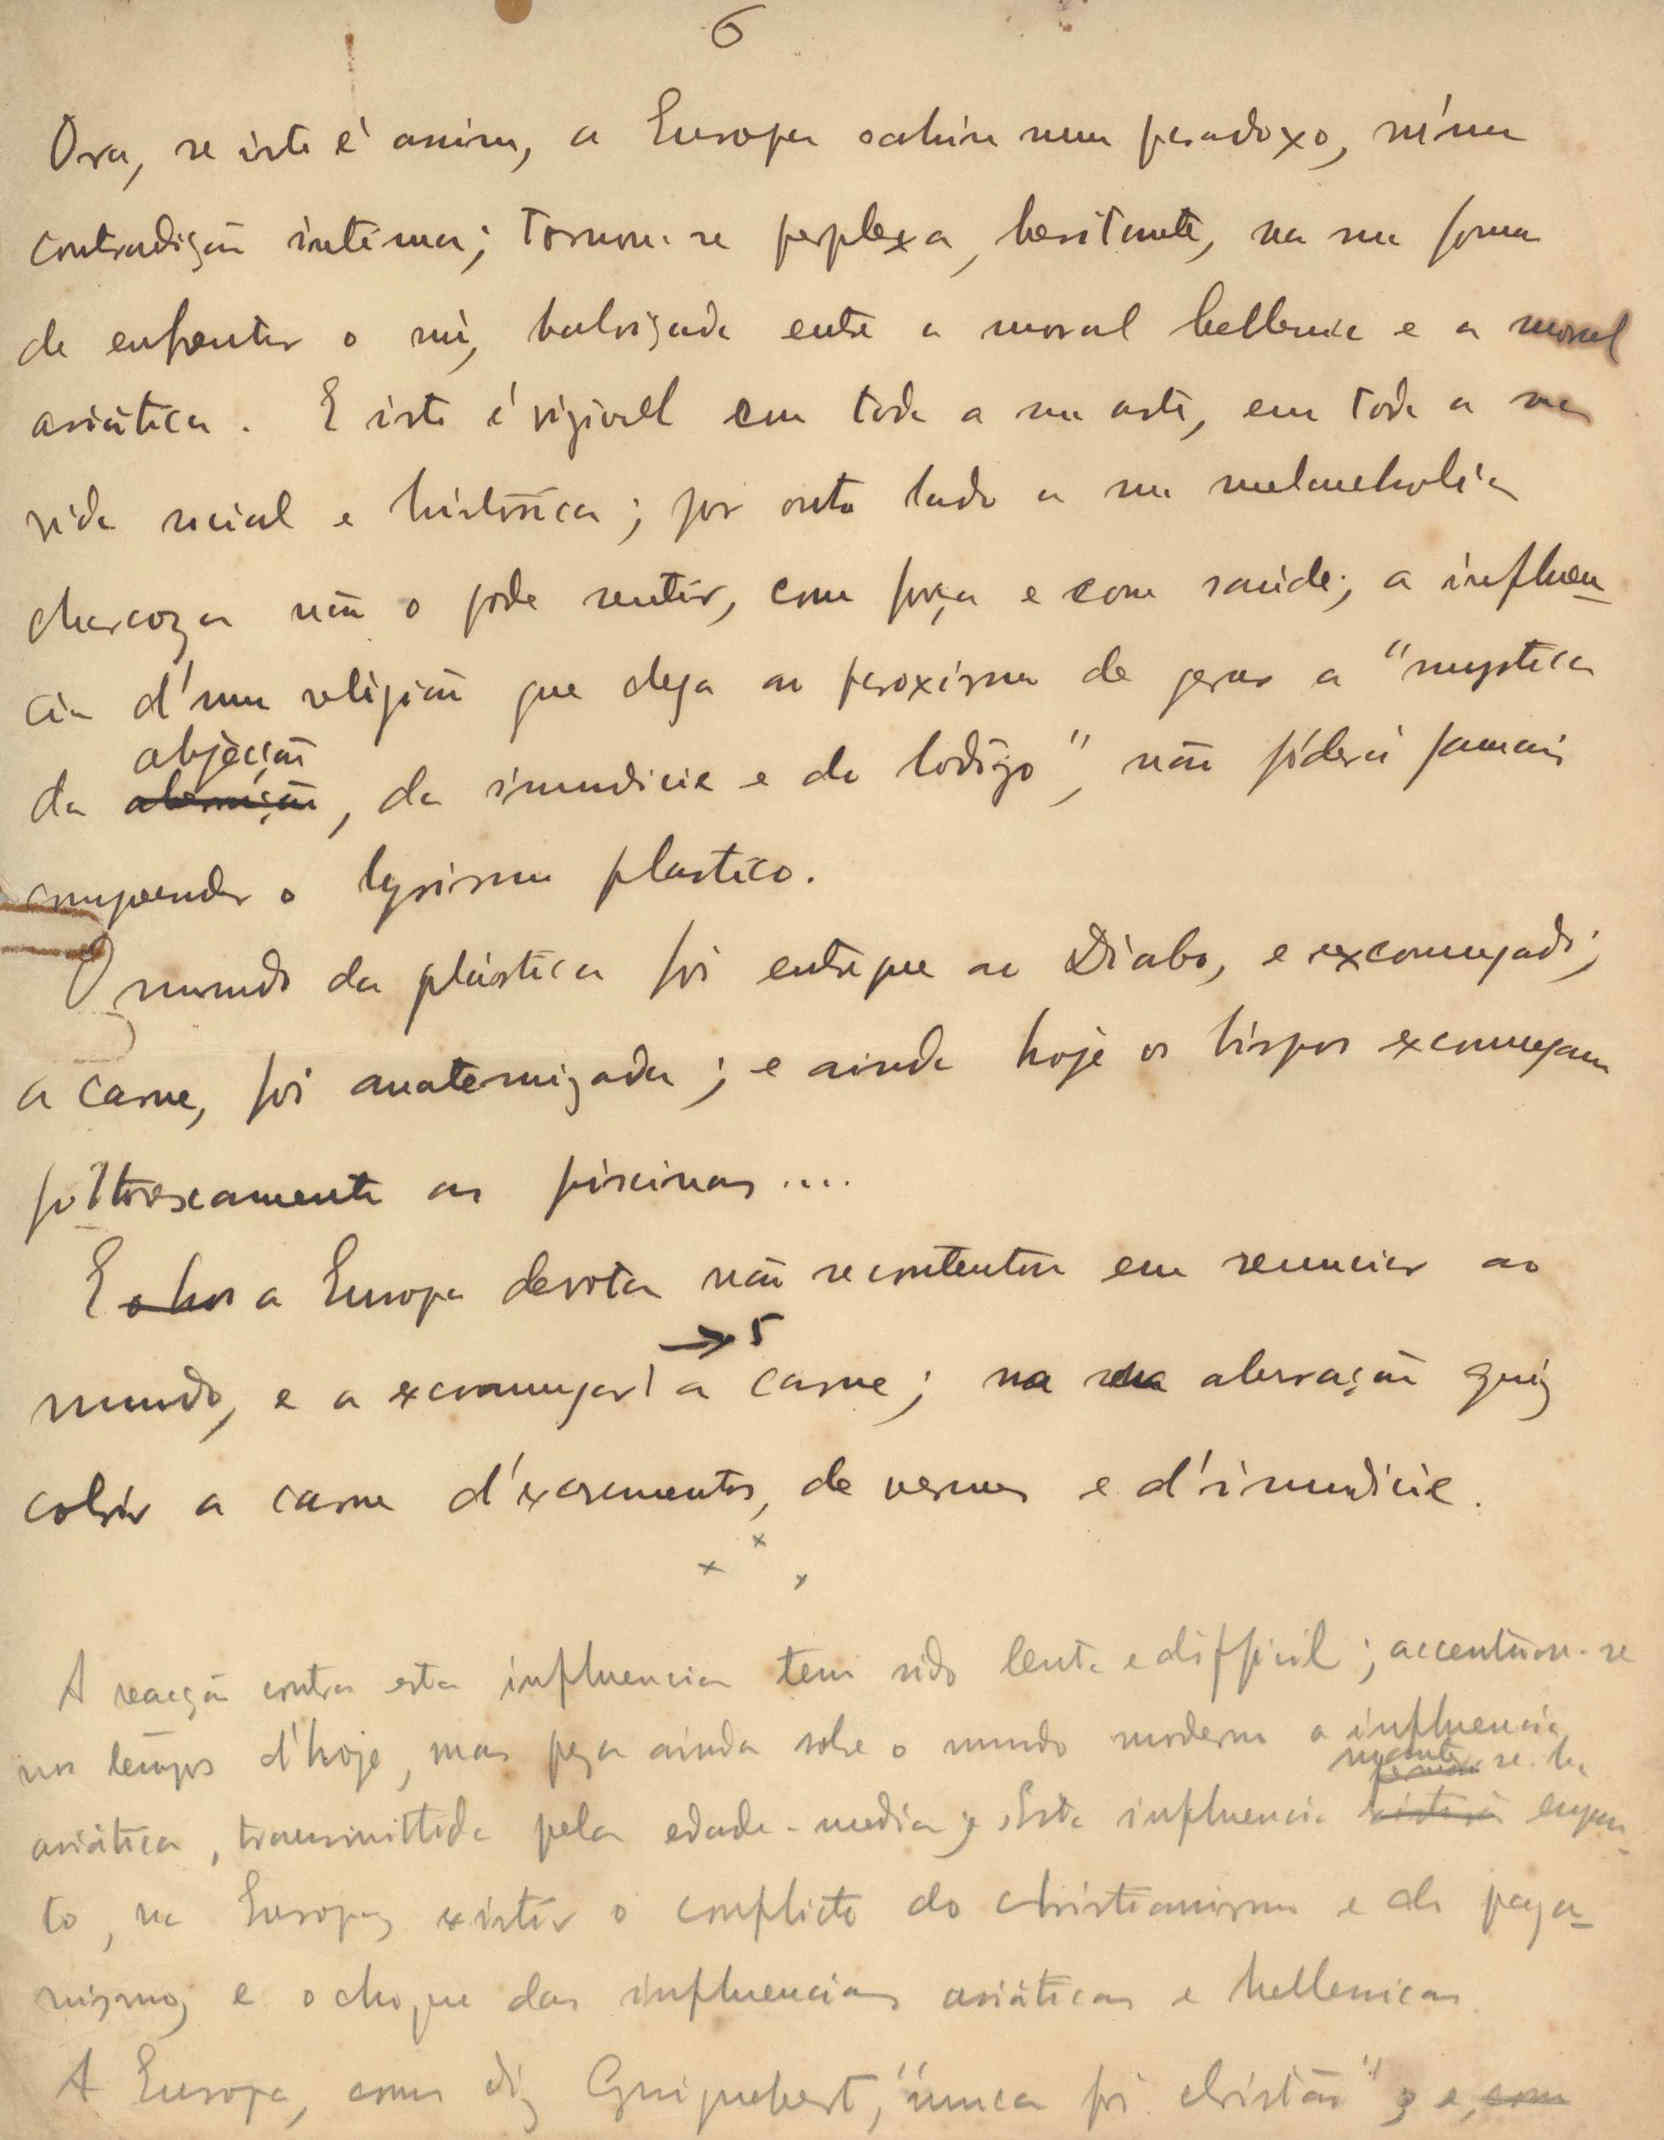 6
Ora, se isto é assim, a Europa cahiu num paradoxo, n'uma
contradição intima; tornou-se perplexa, hesitante, na sua forma
de enfrentar o nú, baloiçada entre a moral hellenica e a moral
asiática. E isto é vizivel em toda a sua arte, em toda a sua
vida social e histórica; por outro lado a sua melancholia
não o pode sentir, com força e com saúde; a influen-
cia d'uma religião que chega ao paroxismo de gerar a "mystica
abjecção
da aberração, da imundicie e do lodo", não poderá jamais
comprender o lyrismo plastico.
O mundo da plástica foi entregue ao Diabo, e excomungado;
a carne, foi anatemizada; e ainda hoje os bispos excomungam
pittorescamente as piscinas....
E a Europa devota não se contentou em renunciar ao
→ 5
mundo, e a excomungar a carne; na sua aberração quiz
cobrir a carne d'excrementos, de vermes e d'imundicie.
x x x
A reacção contra esta influencia tem sido lenta e difficil; accentuou-se
nos tempos d'hoje, mas peza ainda sobre o mundo moderno a influencia
se-ha
asiática, transmittida pela edade-media; Esta influencia enquan-
to, na Europa, existir o conflicto do christianismo e do paga-
nismo, e o choque das influencias asiáticas e hellenicas.
A Europa, como diz Guignebert, "nunca foi christã"; e, com